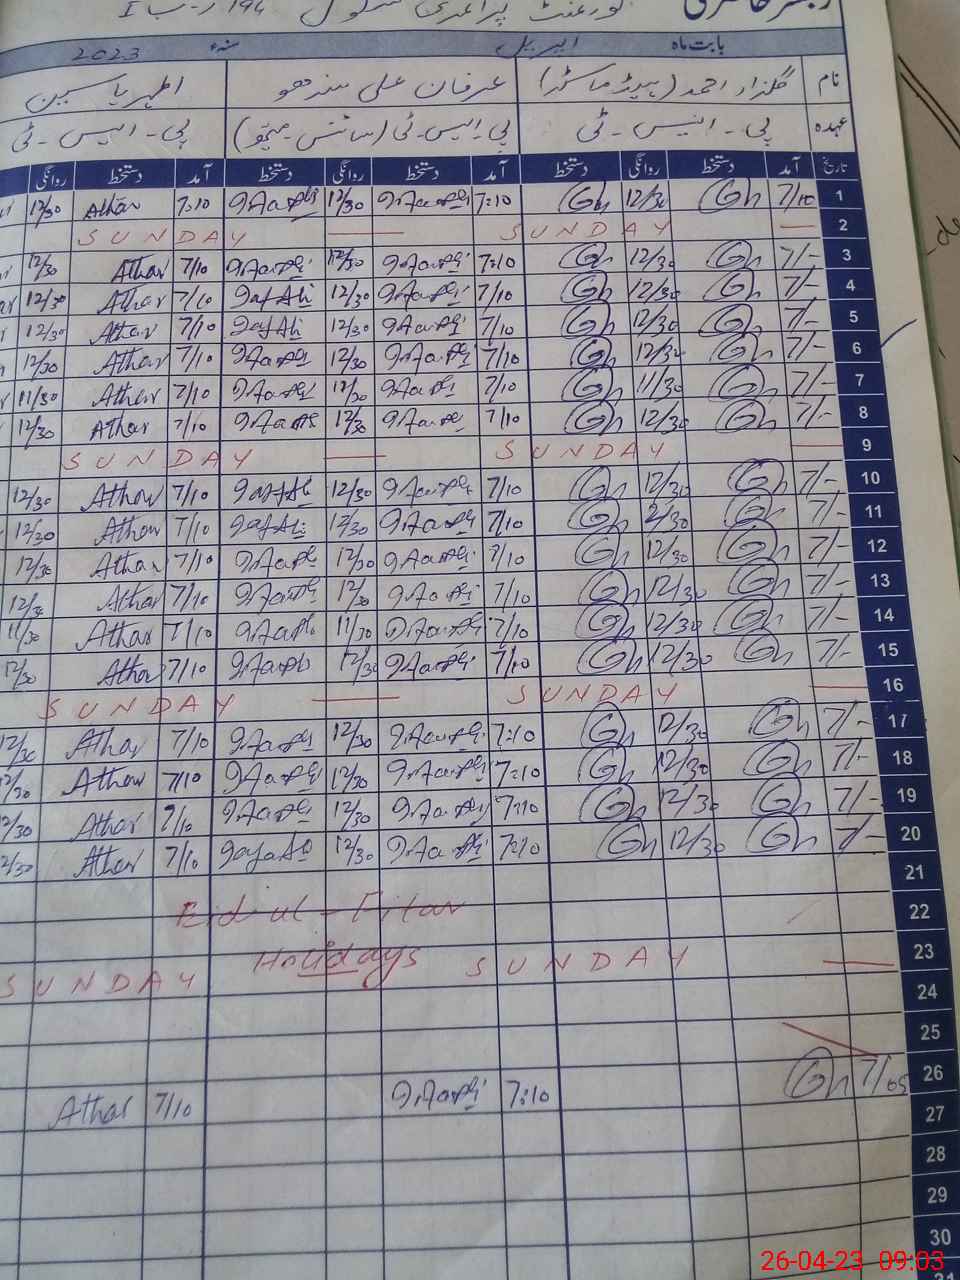 گورنمنٹ پرائمری سکول 194 ر-ب I
بابت ماہ اپریل سنہء 2023
نام گلزار احمد (ہیڈ ماسٹر) عرفان علی سندھو اطہر یاسین
عہدہ پی - ایس - ٹی پی ایس ٹی (سائنس - میتھ) پی - ایس - ٹی
تاریخ آمد دستخط روانگی دستخط آمد دستخط روانگی دستخط آمد دستخط روانگی
1 7/10 Gh 12/30 Gh 7:10 12/30 7:10 Athar 12/30
2 SUNDAY SUNDAY
3 7/- Gh 12/30 Gh 7:10 12/30 7/10 Athar 12/30
4 7/- Gh 12/30 Gh 7/10 12/30 7/10 Athar 12/30
5 7/- Gh 12/30 Gh 7/10 12/30 7/10 Athar 12/30
6 7/- Gh 12/30 Gh 7/10 12/30 7/10 Athar 12/30
7 7/- Gh 11/30 Gh 7/10 7/10 Athar 11/30
8 7/- Gh 12/30 Gh 7/10 12/30 7/10 Athar 12/30
9 SUNDAY SUNDAY
10 7/- Gh 12/30 Gh 7/10 12/30 7/10 Athar 12/30
11 7/- Gh 12/30 Gh 7/10 12/30 7/10 Athar 12/30
12 7/- Gh 12/30 Gh 7/10 12/30 7/10 Athar 12/30
13 7/- Gh 12/30 Gh 7/10 12/30 7/10 Athar 12/30
14 7/- Gh 12/30 Gh 7/10 11/30 7/10 Athar 11/30
15 7/- Gh 12/30 Gh 7/10 12/30 7/10 Athar 12/30
16 SUNDAY SUNDAY
17 7/- Gh 12/30 Gh 7:10 12/30 7/10 Athar 12/30
18 7/- Gh 12/30 Gh 7:10 12/30 7/10 Athar 12/30
19 7/- Gh 12/30 Gh 7:10 12/30 7/10 Athar 12/30
20 7/- Gh 12/30 Gh 7:10 12/30 7/10 Athar 12/30
21
22 Eid ul-Fitar
23 SUNDAY Holidays SUNDAY
24
25
26 7/05 Gh 7:10 7/10 Athar
27
28
29
30
31
26-04-23 09:03